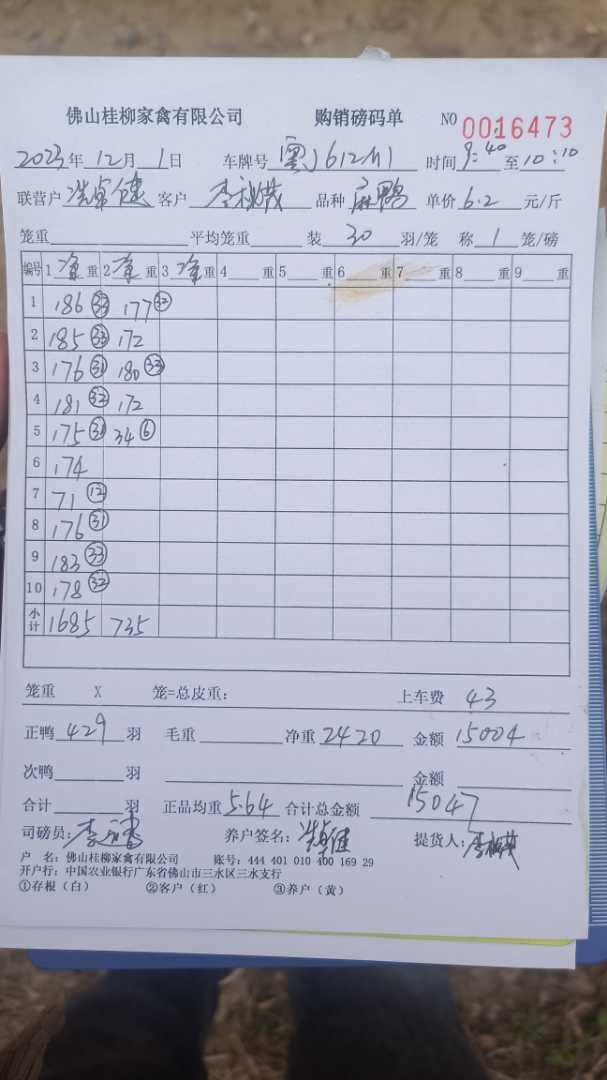 佛山桂柳家禽有限公司 购销磅码单 NO 0016473
2023年 12月 1日 车牌号 粤J612M1 时间 9:40 至 10:10
联营户 冼卓健 客户 品种 麻鸭 单价 6.2 元/斤
笼重 平均笼重 装 30 羽/笼 称 1 笼/磅
编号 1 净 重 2 净 重 3 净 重 4 重 5 重 6 重 7 重 8 重 9 重
1 186 177 32
2 185 33 172
3 176 31 180 33
4 181 32 172
5 175 31 34 6
6 174
7 71 12
8 176 31
9 183 33
10 178 32
小计 1685 735
笼重 X 笼=总皮重: 上车费 43
正鸭 429 羽 毛重 净重 2420 金额 15004
次鸭 羽 金额
合计 羽 正品均重 5.64 合计总金额 15047
司磅员: 养户签名: 冼卓健 提货人:
户 名: 佛山桂柳家禽有限公司 账号: 444 401 010 400 169 29
开户行: 中国农业银行广东省佛山市三水区三水支行
①存根(白) ②客户(红) ③养户(黄)